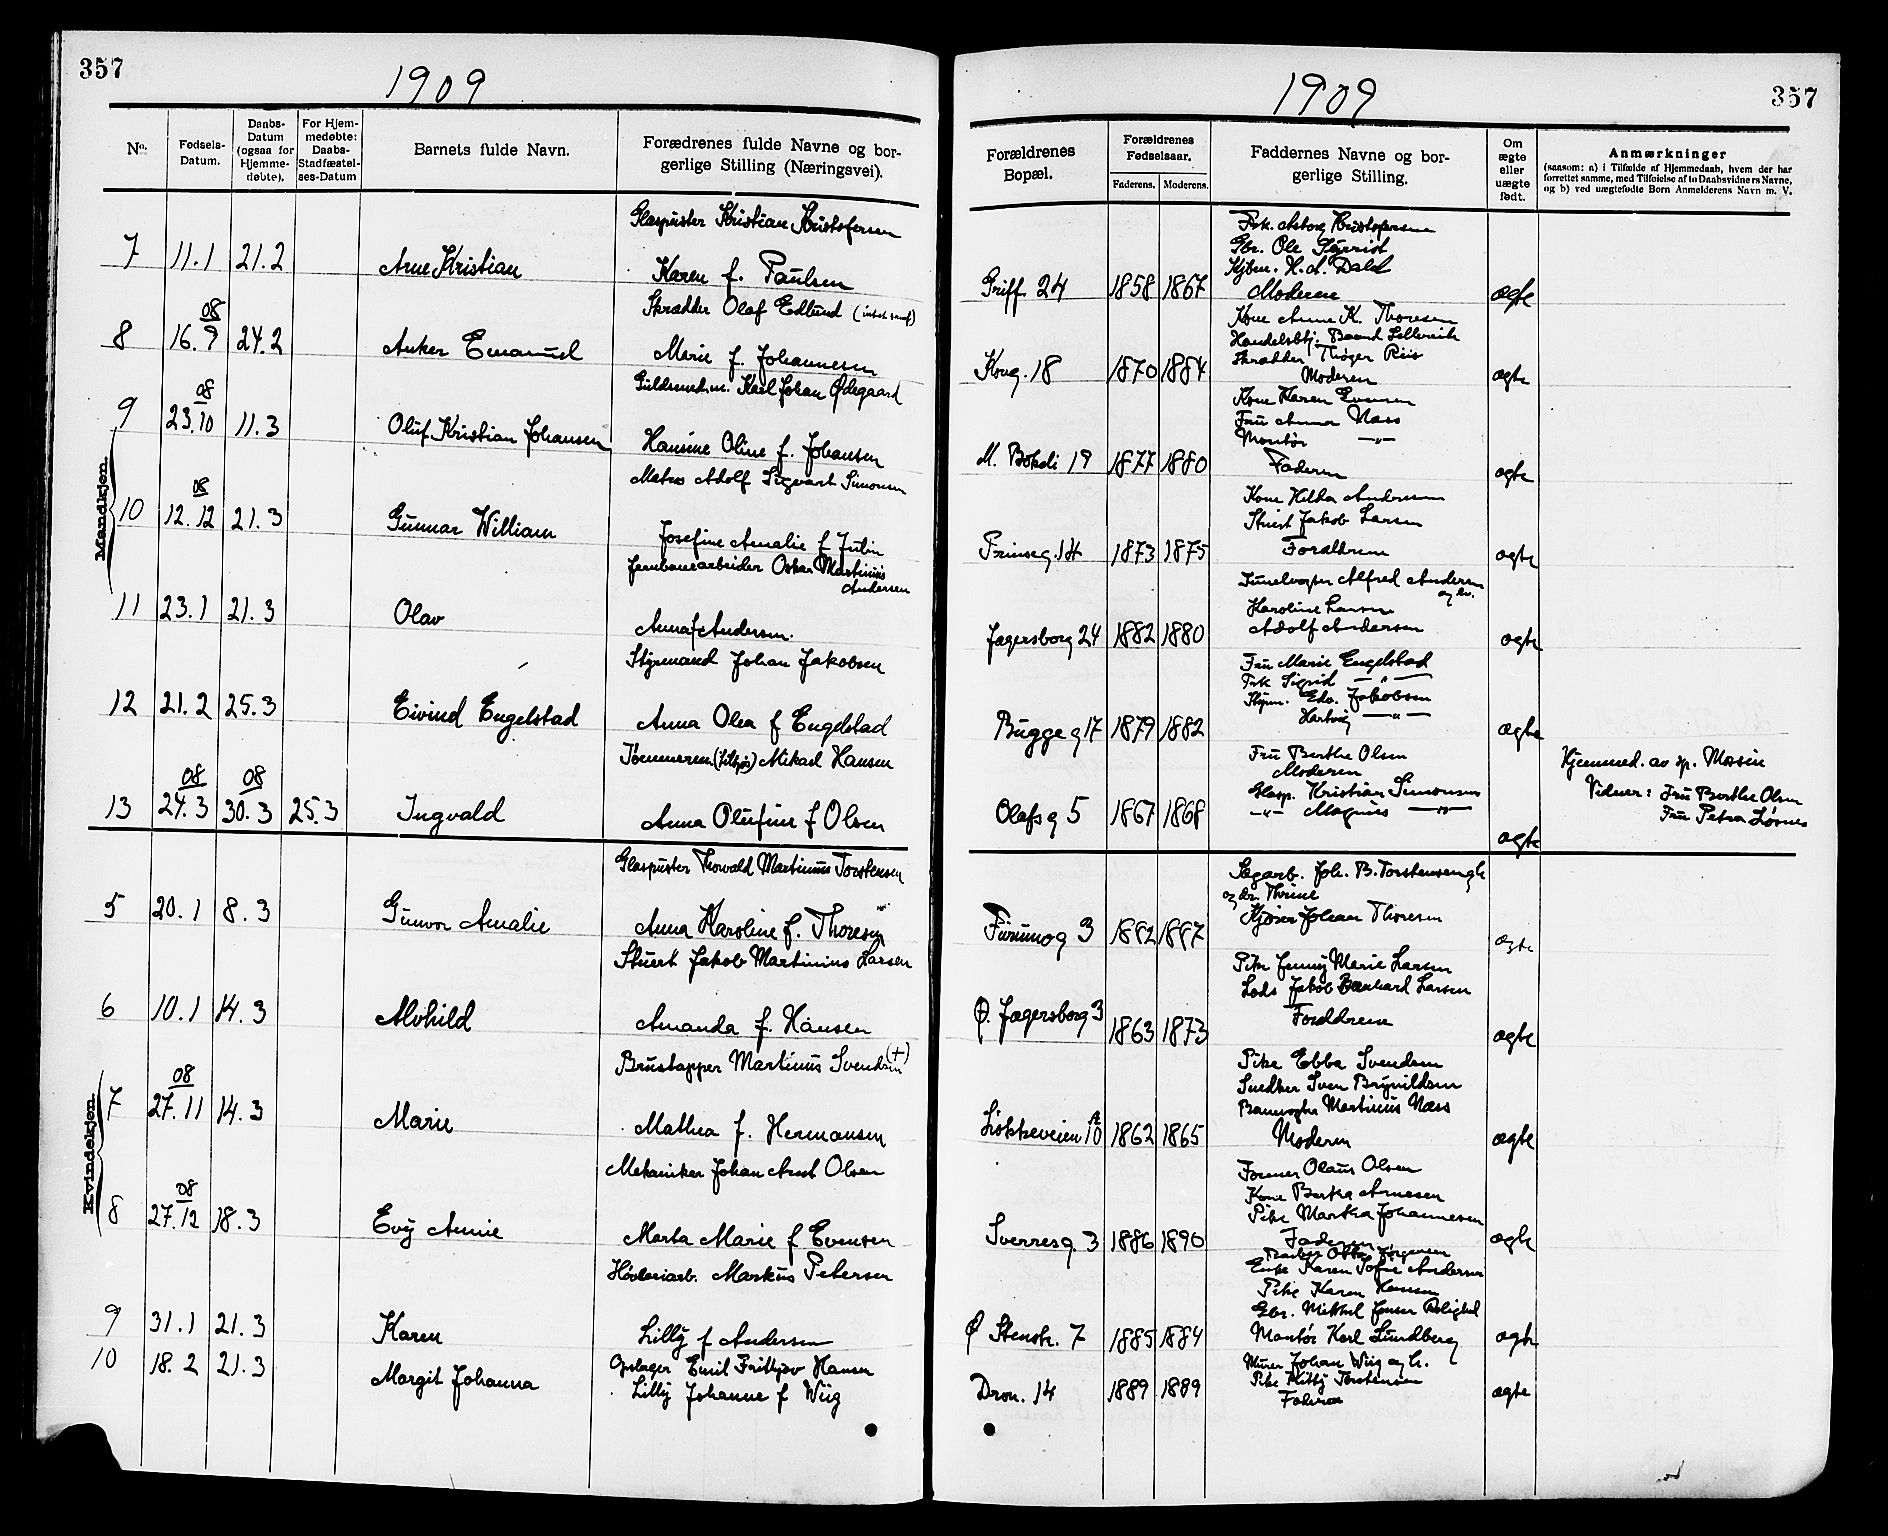 357
1909
No.
Fødsels-
Datum.
Daabs-
Datum
(ogsaa for
Hjemme-
døbte).
For Hjem-
medøbte:
Daabs-
Stadfæstel-
ses-Datum
Barnets fulde Navn.
Forædrenes fulde Navne og bor-
gerlige Stilling (Næringsvei).
Mandkjøn
Glaspuster Kristian Kristofersen
7 11.1 21.2 Arne Kristian Karen f. Paulsen
Skrædder Olaf Edlund
08
8 16.9 24.2 Anker Emanuel Marie f. Johannesen
Guldsmedm. Karl Johan Ødegaard
08
9 23.10 11.3 Oluf Kristian Johansen Hansine Oline f. Johansen
Matros Adolf Sigvart Simonsen
08
10 12.12 21.3 Gunnar William Josefine Amalie f Julin
Jernbanearbeider Oskar Martinius
Andersen
11 23.1 21.3 Olav Anna f Andersen.
Styrmand Johan Jakobsen
12 21.2 25.3 Eivind Engelstad Anna Olea f Engelstad
Tømmerm. Mikael Hansen
08 08
13 24.3 30.3 25.3 Ingvald Anna Olufine f Olsen
Kvindekjøn
Glaspuster Thorvald Martinius Torstensen
5 20.1 8.3 Gunvor Amalie Anna Karoline f. Thoresen
Stuert Jakob Martinius Larsen
6 10.1 14.3 Alvhild Amanda f. Hansen
Brustapper Martinus Svendsen (+)
08
7 27.11 14.3 Marie Mathea f. Hermansen
Mekaniker Johan Arnt Olsen
08
8 27.12 18.3 Evy Annie Marta Marie f Evensen
Høvleriarb. Markus Petersen
9 31.1 21.3 Karen Lilly f Andersen
10 18.2 21.3 Margit Johanna Opslager Emil Fritjov Hansen
Lilly Johanne f Wiig
1909
357
Forældrenes
Bopæl.
Forældrenes
Fødselsaar.
Faderens. Moderens.
Faddernes Navne og bor-
gerlige Stilling.
Om
ægte
eller
uægte
født.
Anmærkninger
(saasom: a) i Tilfælde af Hjemmedaab, hvem der har
forrettet samme, med Tilføielse af to Daabsvidners Navne,
og b) ved uægtefødte Børn Anmelderens Navn m. V.
Pik. Asborg Kristofersen
Gbr. Ole
Kjbm. H. A. Dahl
Griff. 24 1858 1867 Moderen ægte
Kone Anna K. Thoresen
Handelsbtj.
Skrædder Thøger Riis
Kong. 18 1870 1884 Moderen ægte
Kone Karen Evensen
Fru Anna Næss
Montør —"—
M. Bokeli 19 1877 1880 Faderen ægte
Kone Hilda Andersen
Stuert Jakob Larsen
Prinseg. 14 1873 1875 Forældrene ægte
Tunelvogter Alfred Andersen
Karoline Larsen
Jægersborg 24 1882 1880 Adolf Andersen ægte
Fru Marie Engelstad
Pik Sigrid —"—
Styrm. Edv. Jakobsen
Buggeg 17 1879 1882 Hartvig —"— ægte
Fru Berthe Olsen
Moderen
Glasp. Kristian Simonsen
Olafsg 5 1867 1868 —"— Magnus —"— ægte
Hjemmed. av sp. Mossin
Vidner: Fru Berthe Olsen
Fru Petra
Sagarb. Joh. B. Torstensen
og dr. Thrine
Furumog 3 1882 1887 Kjører Johan Thoresen ægte
Pike Jenny Marie Larsen
Lods Jakob Bernhard Larsen
Ø. Jægersborg 3 1863 1873 Forældrene ægte
Pike Ebba Svendsen
Snedker Sven Brynildsen
Banevogter Martinius Næss
Løkkeveien 10 A 1862 1865 Moderen ægte
Former Olaus Olsen
Kone Berta Arnesen
Pike Martha Johannesen
Sverresg. 3 1886 1890 Faderen ægte
Otto Jørgensen
Enke Karen Sofie Andersen
Pike Karen Hansen
Gbr. Mikkel Jensen
Ø Stenstr. 7 1885 1884 Montør Karl Lundberg ægte
Murer Johan Wiig og h.
Torstensen
Dron. 14 1889 1889 Faderen ægte